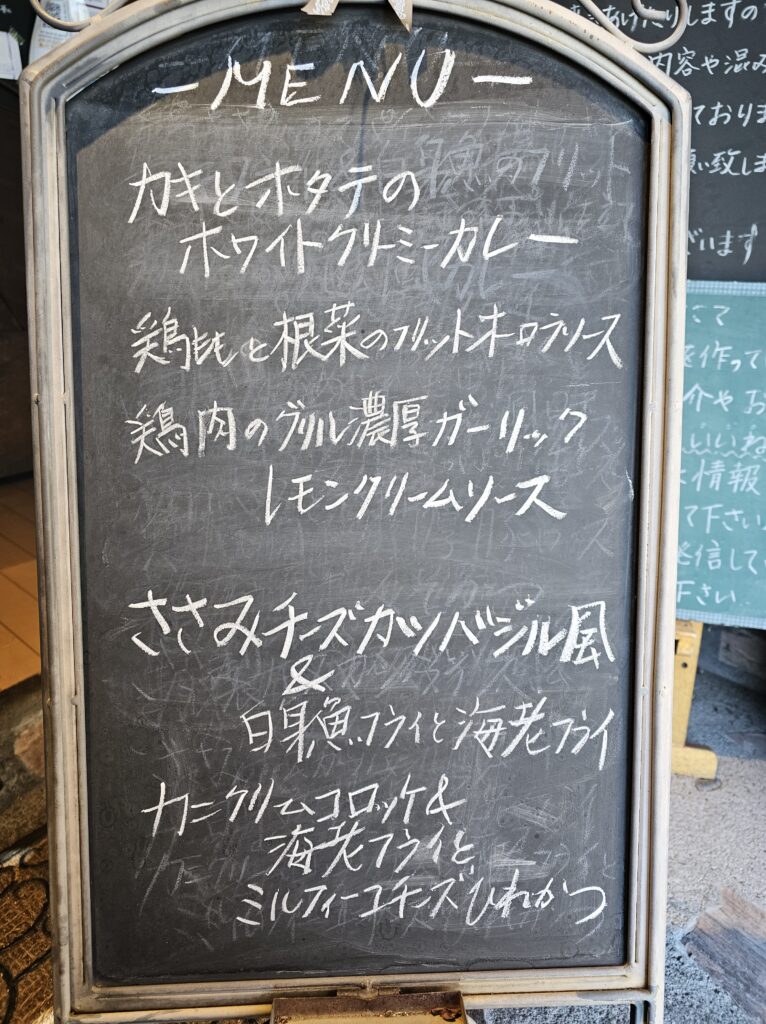 -MENU-
カキとホタテの
ホワイトクリーミーカレー
鶏ももと根菜のフリットオーロラソース
鶏肉のグリル濃厚ガーリック
レモンクリームソース
ささみチーズカツバジル風
&
白身魚フライと海老フライ
カニクリームコロッケ&
海老フライと
ミルフィーユチーズひれかつ
りしますの
内容や混み
ております
致しま
ざいます
にて
を作って
介やお
いいね
情報
て下さい
発信して
下さい